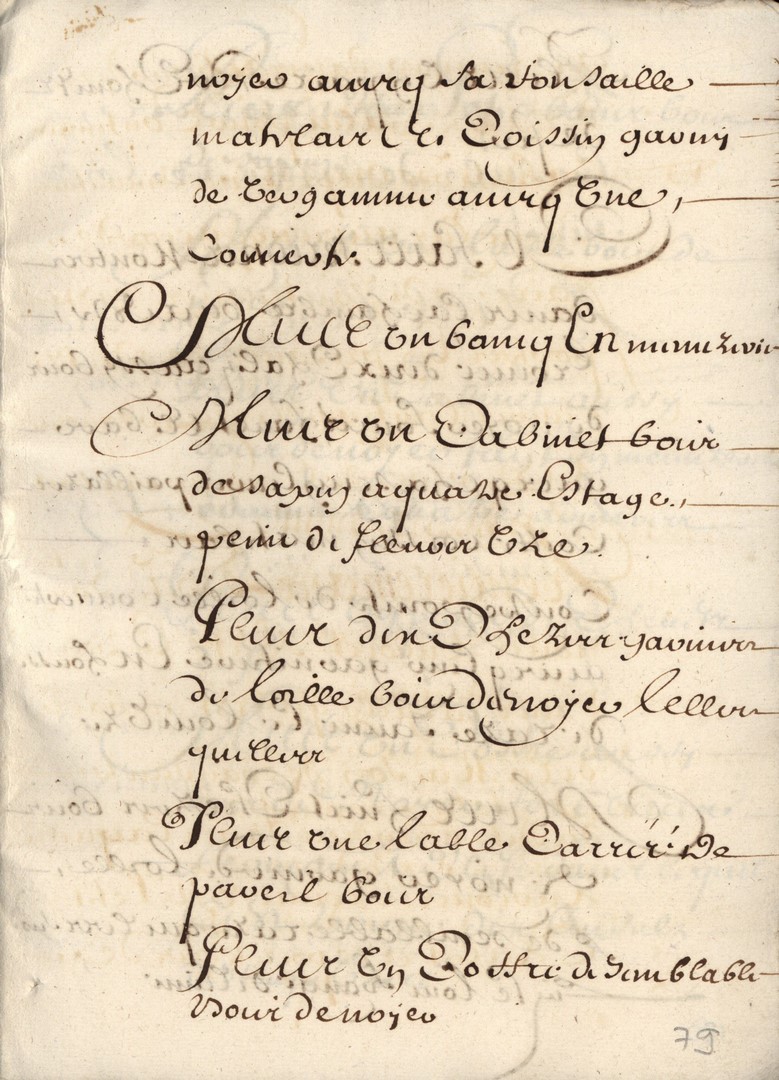 noyer avecq sa tousaille
matelair et Coissin garny
de bergamme avecq une
couverte
Plus un bancq En menuzerie
Plus un Cabinet bois
de sapin a quatre Estage
peint de
Plus dix Chezes garnies
de toille bois de noyer telles
quelles
Plus une table Carrée de
pareil bois
Plus un Coffre de semblable
bois de noyer
79